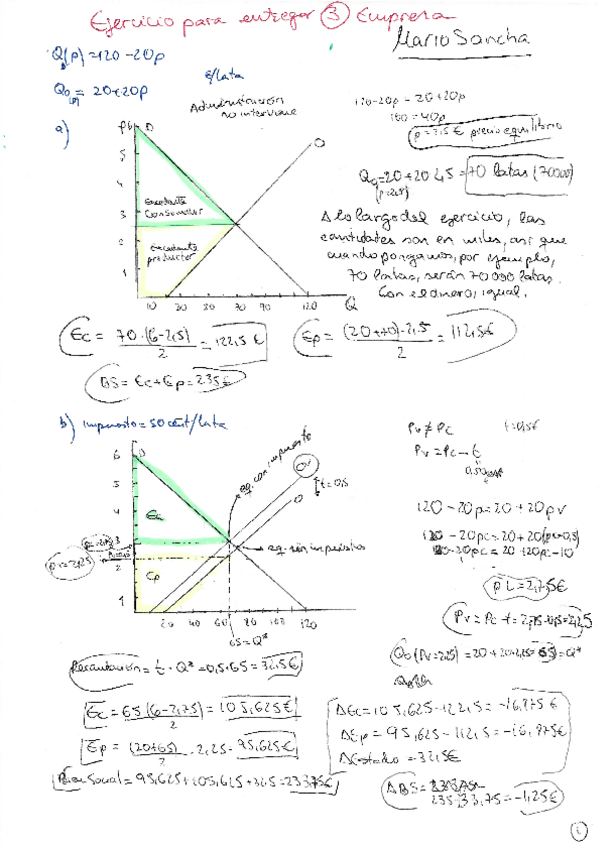 Ejercicio para entregar ③ Empresa
Mario Sancha
Q_D(p) = 120 - 20p
Q_O(p) = 20 + 20p
€/lata
Administración
no interviene
a)
120 - 20p = 20 + 20p
100 = 40p
p = 2,5€ precio equilibrio
Q_O(p=2,5) = 20 + 20·2,5 = 70 latas (70000)
A lo largo del ejercicio, las
cantidades son en miles, así que
cuando pongamos, por ejemplo,
70 latas, serán 70000 latas.
Con el dinero, igual.
p
6
D
5
4
3
2
1
O
Excedente
Consumidor
Excedente
productor
20
70
90
120
Q
Ec = 70·(6-2,5)/2 = 122,5€
Ep = (20+70)·2,5/2 = 112,5€
BS = Ec + Ep = 235€
b) impuesto = 50 cent/lata
Pv ≠ Pc
t = 0,5€
Pv = Pc - t
120 - 20pc = 20 + 20pv
120 - 20pc = 20 + 20(pc-0,5)
120 - 20pc = 20 + 20pc - 10
pc = 2,75€
Pv = Pc - t = 2,75 - 0,5 = 2,25
Q_O(Pv=2,25) = 20 + 20·2,25 = 65 = Q*
6
D
5
4
3
2
1
eq. con impuesto
O'
O
t = 0,5
eq. sin impuestos
Ec
Ep
pc = 2,75
pv = 2,25
20
40
60
80
100
120
65 = Q*
Recaudación = t · Q* = 0,5·65 = 32,5€
Ec = 65(6-2,75)/2 = 105,625€
Ep = (20+65)/2 · 2,25 = 95,625€
Bien Social = 95,625 + 105,625 + 32,5 = 233,75€
ΔEc = 105,625 - 122,5 = -16,875 €
ΔEp = 95,625 - 112,5 = -16,875€
ΔEstado = 32,5€
ΔBS =
= -1,25€
1